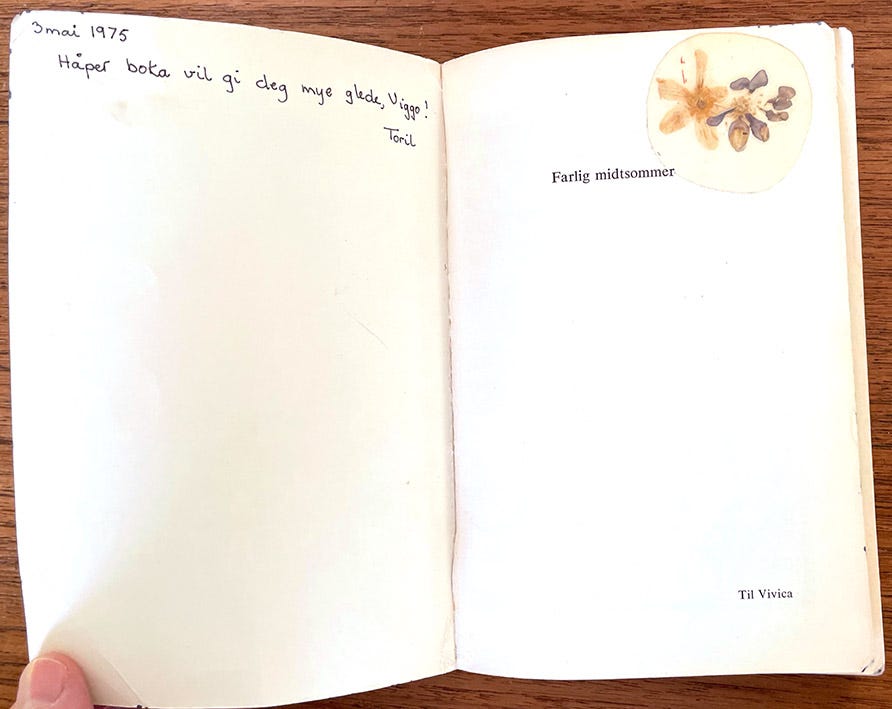 3 mai 1975
Håper boka vil gi deg mye glede, Viggo!
Toril
Farlig midtsommer
Til Vivica